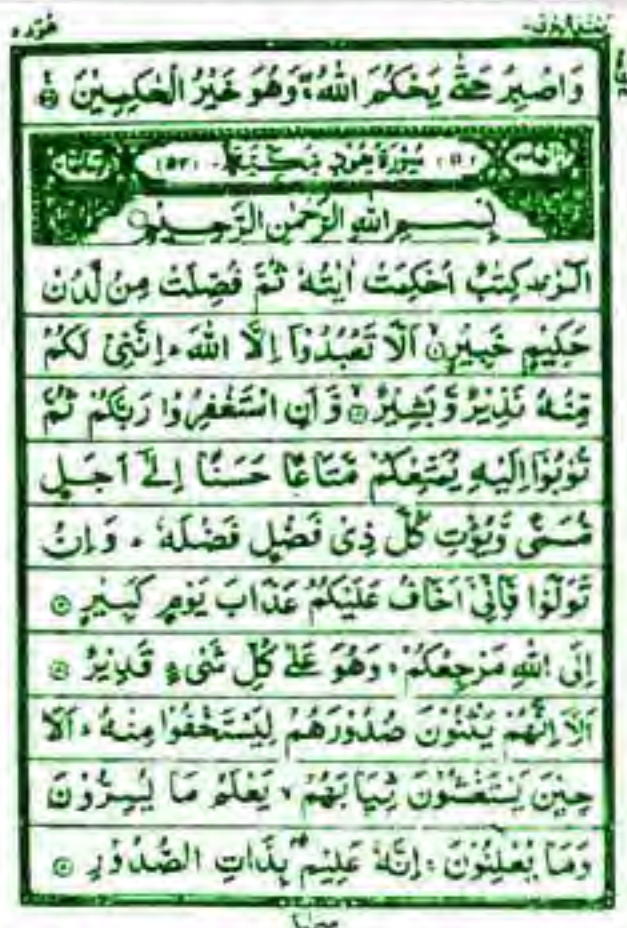 هُوْد ١١
وَاصْبِرْ حَتّٰى يَحْكُمَ اللّٰهُ ۚ وَهُوَ خَيْرُ الْحٰكِمِيْنَ
(١١) سُوْرَةُ هُوْدٍ مَّكِّيَّةٌ (٥٢)
بِسْمِ اللّٰهِ الرَّحْمٰنِ الرَّحِيْمِ
الٓرٰ ۚ كِتٰبٌ اُحْكِمَتْ اٰيٰتُهٗ ثُمَّ فُصِّلَتْ مِنْ لَّدُنْ
حَكِيْمٍ خَبِيْرٍ ۙ اَلَّا تَعْبُدُوْٓا اِلَّا اللّٰهَ ؕ اِنَّنِيْ لَكُمْ
مِّنْهُ نَذِيْرٌ وَّبَشِيْرٌ ۙ وَّاَنِ اسْتَغْفِرُوْا رَبَّكُمْ ثُمَّ
تُوْبُوْٓا اِلَيْهِ يُمَتِّعْكُمْ مَّتَاعًا حَسَنًا اِلٰٓى اَجَلٍ
مُّسَمًّى وَّيُؤْتِ كُلَّ ذِيْ فَضْلٍ فَضْلَهٗ ؕ وَاِنْ
تَوَلَّوْا فَاِنِّيْٓ اَخَافُ عَلَيْكُمْ عَذَابَ يَوْمٍ كَبِيْرٍ
اِلَى اللّٰهِ مَرْجِعُكُمْ ۚ وَهُوَ عَلٰى كُلِّ شَيْءٍ قَدِيْرٌ
اَلَآ اِنَّهُمْ يَثْنُوْنَ صُدُوْرَهُمْ لِيَسْتَخْفُوْا مِنْهُ ؕ اَلَا
حِيْنَ يَسْتَغْشُوْنَ ثِيَابَهُمْ ۙ يَعْلَمُ مَا يُسِرُّوْنَ
وَمَا يُعْلِنُوْنَ ۚ اِنَّهٗ عَلِيْمٌۢ بِذَاتِ الصُّدُوْرِ